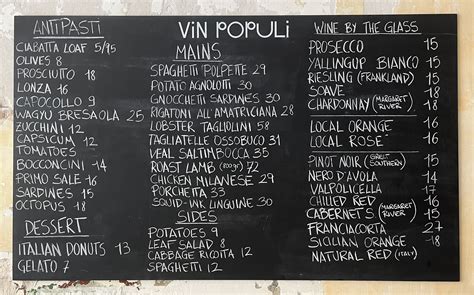 ANTIPASTI
CIABATTA LOAF 5/95
OLIVES 8
PROSCIUTTO 18
LONZA 16
CAPOCOLLO 9
WAGYU BRESAOLA 25
ZUCCHINI 12
CAPSICUM 12
TOMATOES
BOCCONCINI 14
PRIMO SALE 16
SARDINES 15
OCTOPUS 18
DESSERT
ITALIAN DONUTS 13
GELATO 7
VIN POPULI
MAINS
SPAGHETTI POLPETTE 29
POTATO AGNOLOTTI 30
GNOCCHETTI SARDINES 30
RIGATONI ALL'AMATRICIANA 28
LOBSTER TAGLIOLINI 58
TAGLIATELLE OSSOBUCO 31
VEAL SALTIMBOCCA 35
ROAST LAMB 72
CHICKEN MILANESE 29
PORCHETTA 33
SQUID-INK LINGUINE 30
SIDES
POTATOES 9
LEAF SALAD 8
CABBAGE RICOTTA 12
SPAGHETTI 12
WINE BY THE GLASS
PROSECCO 15
YALLINGUP BIANCO 15
RIESLING (FRANKLAND) 15
SOAVE 18
CHARDONNAY (MARGARET RIVER) 18
LOCAL ORANGE 16
LOCAL ROSE 16
PINOT NOIR (GREAT SOUTHERN) 15
NERO D'AVOLA 14
VALPOLICELLA 17
CHILLED RED 16
CABERNETS (MARGARET RIVER) 15
FRANCIACORTA 27
SICILIAN ORANGE 18
NATURAL RED (ITALY)